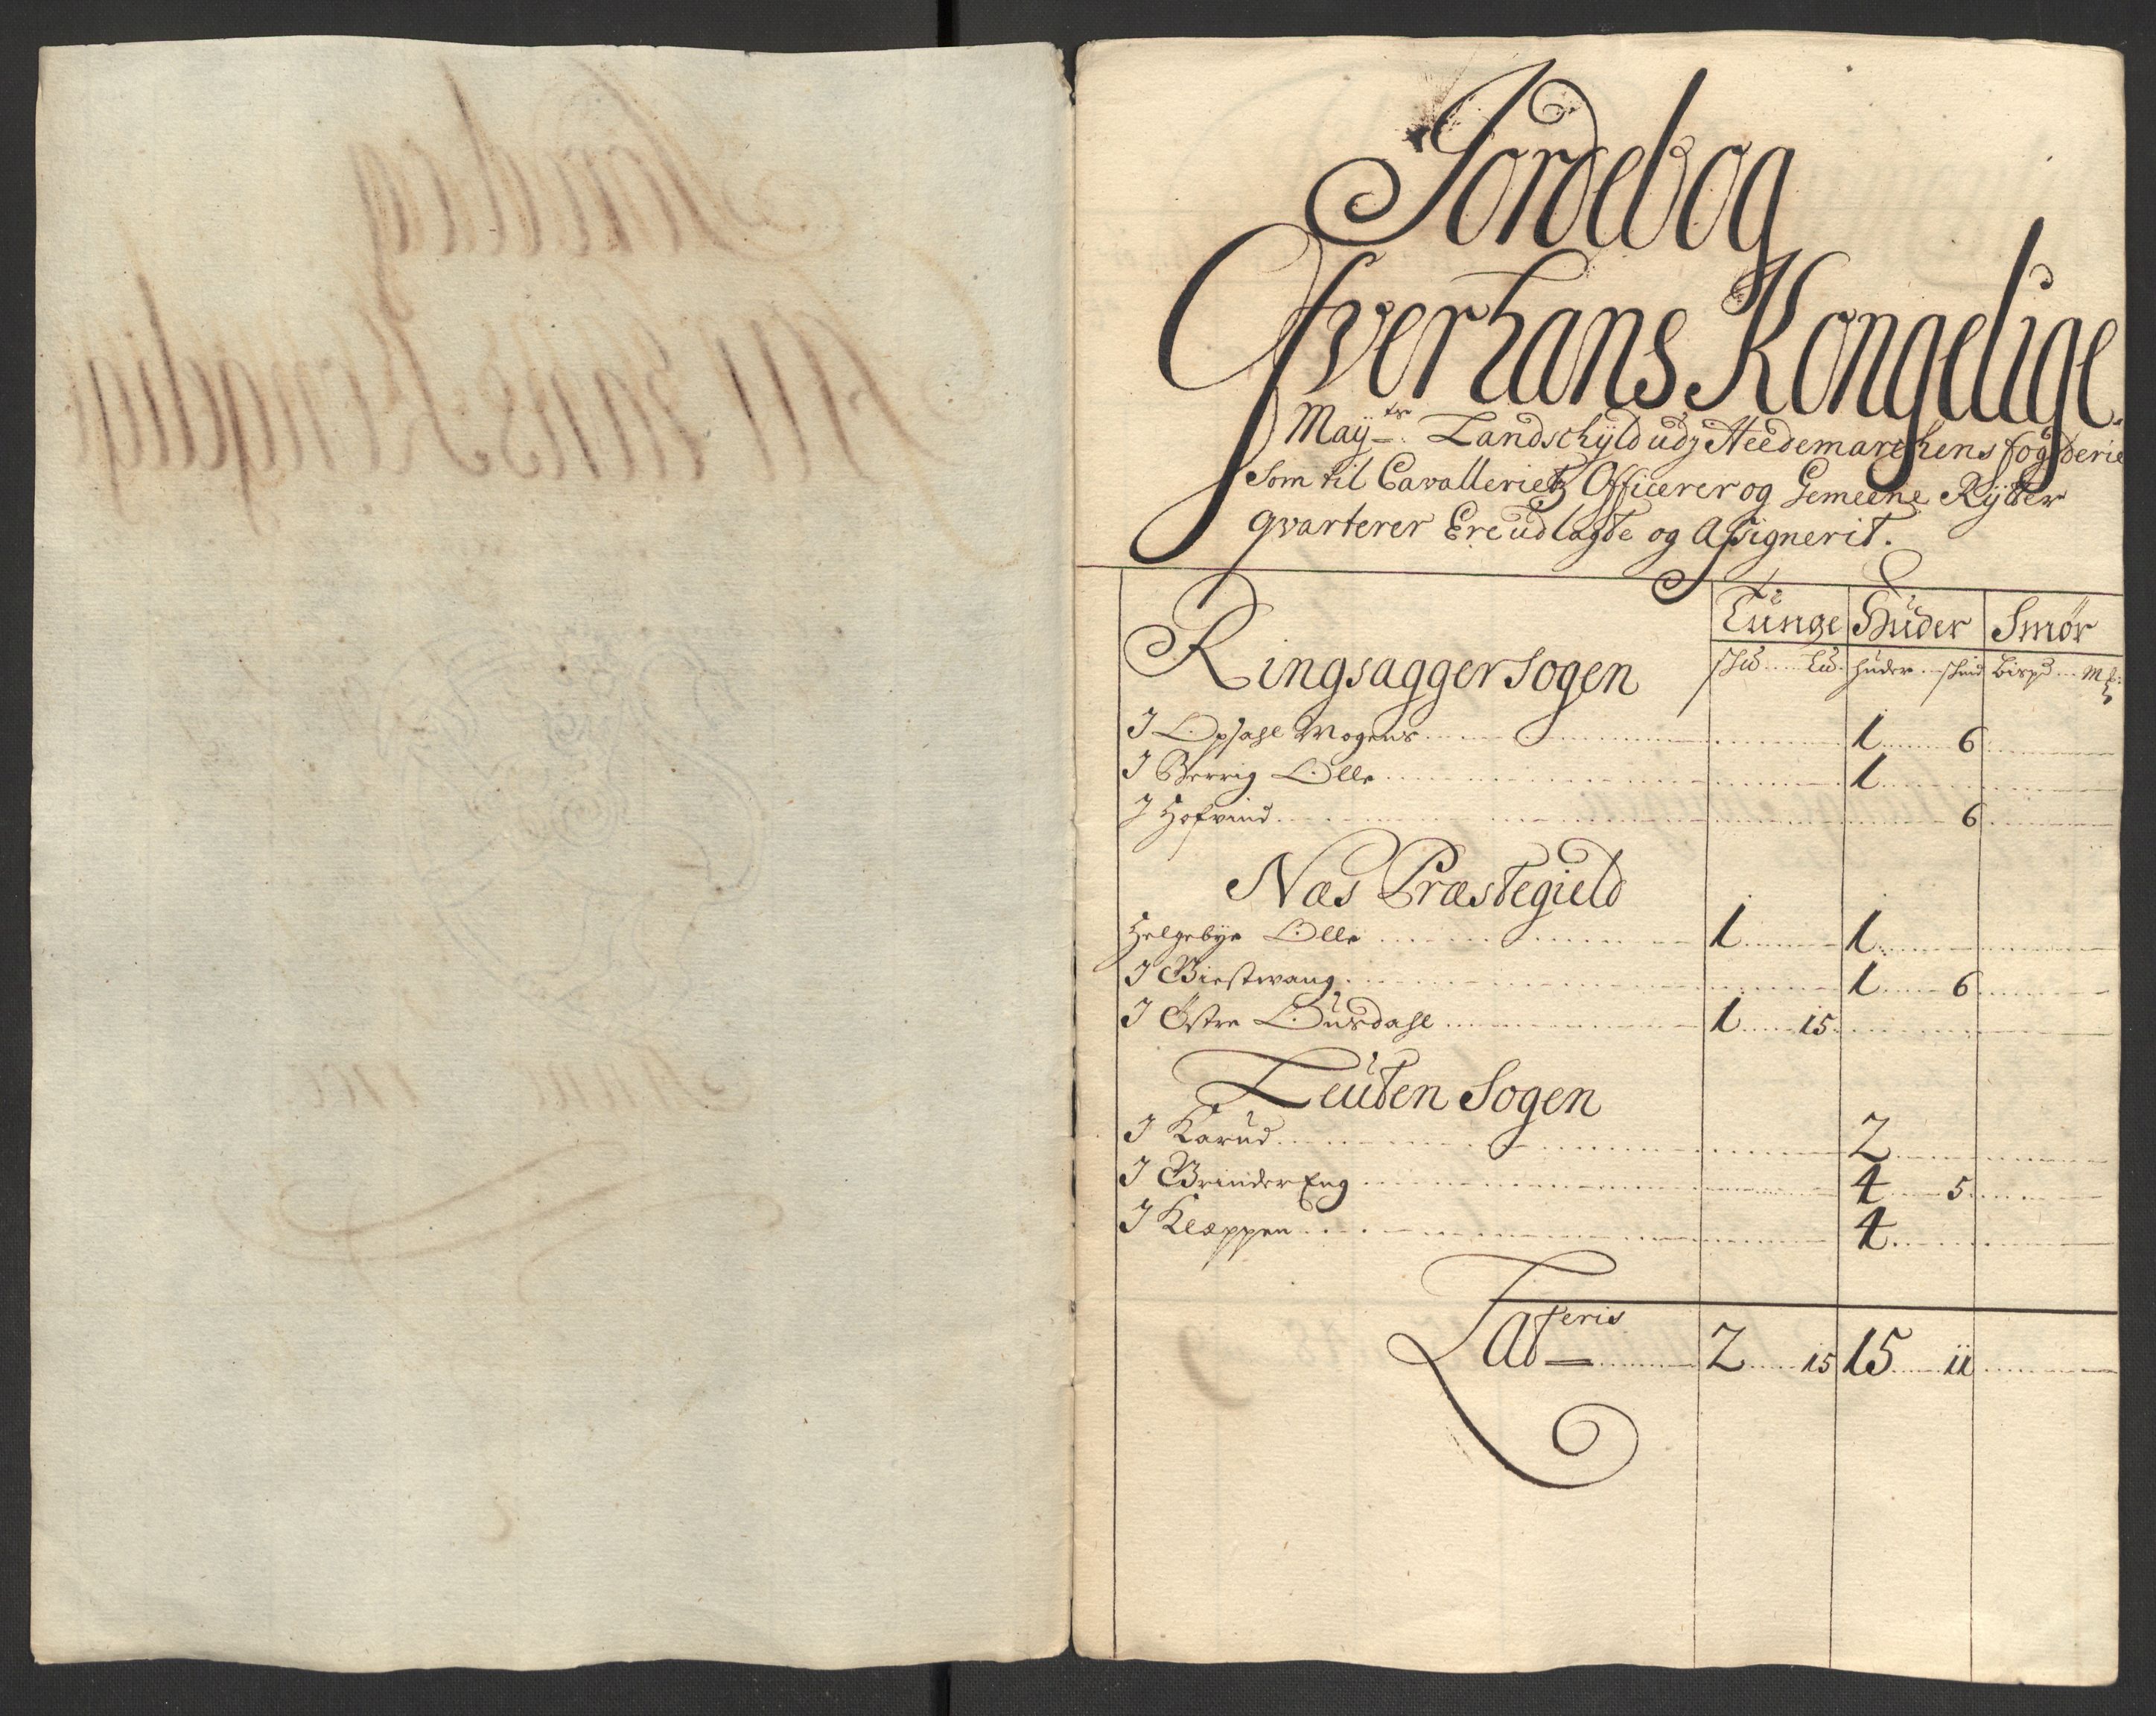 Jordebog
Ofver hans Kongelige
May_ts. Landschyld udj Heedemarchens fogderie
Som til Cavalleriet Officerer og Gemeene Rytter
qvarterer Ere udlagde og Assignerit.
Tunge Huder Smør
Ringsagger Sogen
Huder
J Opsahl Mogens 1 6
J Berrig Olle 1
J Hofvind 6
Næs Præstegield
Helgebye Olle 1 1
J Biestwang 1 6
J Østre 1 15
Leuten Sogen
J Karud 2
J Brinder Eng 4 5
J Klæppen 4
Lateris 2 15 15 11